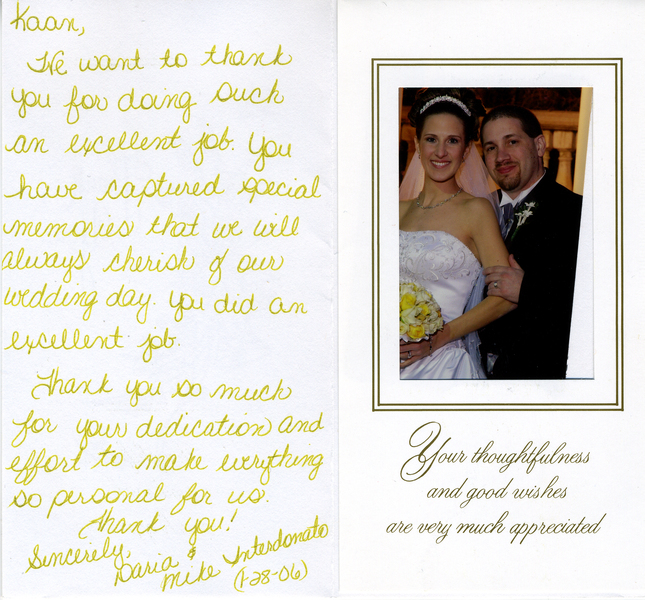 Kaan,
We want to thank
you for doing such
an excellent job. You
have captured special
memories that we will
always cherish of our
wedding day. You did an
excellent job.
Thank you so much
for your dedication and
effort to make everything
so personal for us.
Thank you!
Sincerely,
Daria &
Mike Interdonato
(1-28-06)
Your thoughtfulness
and good wishes
are very much appreciated